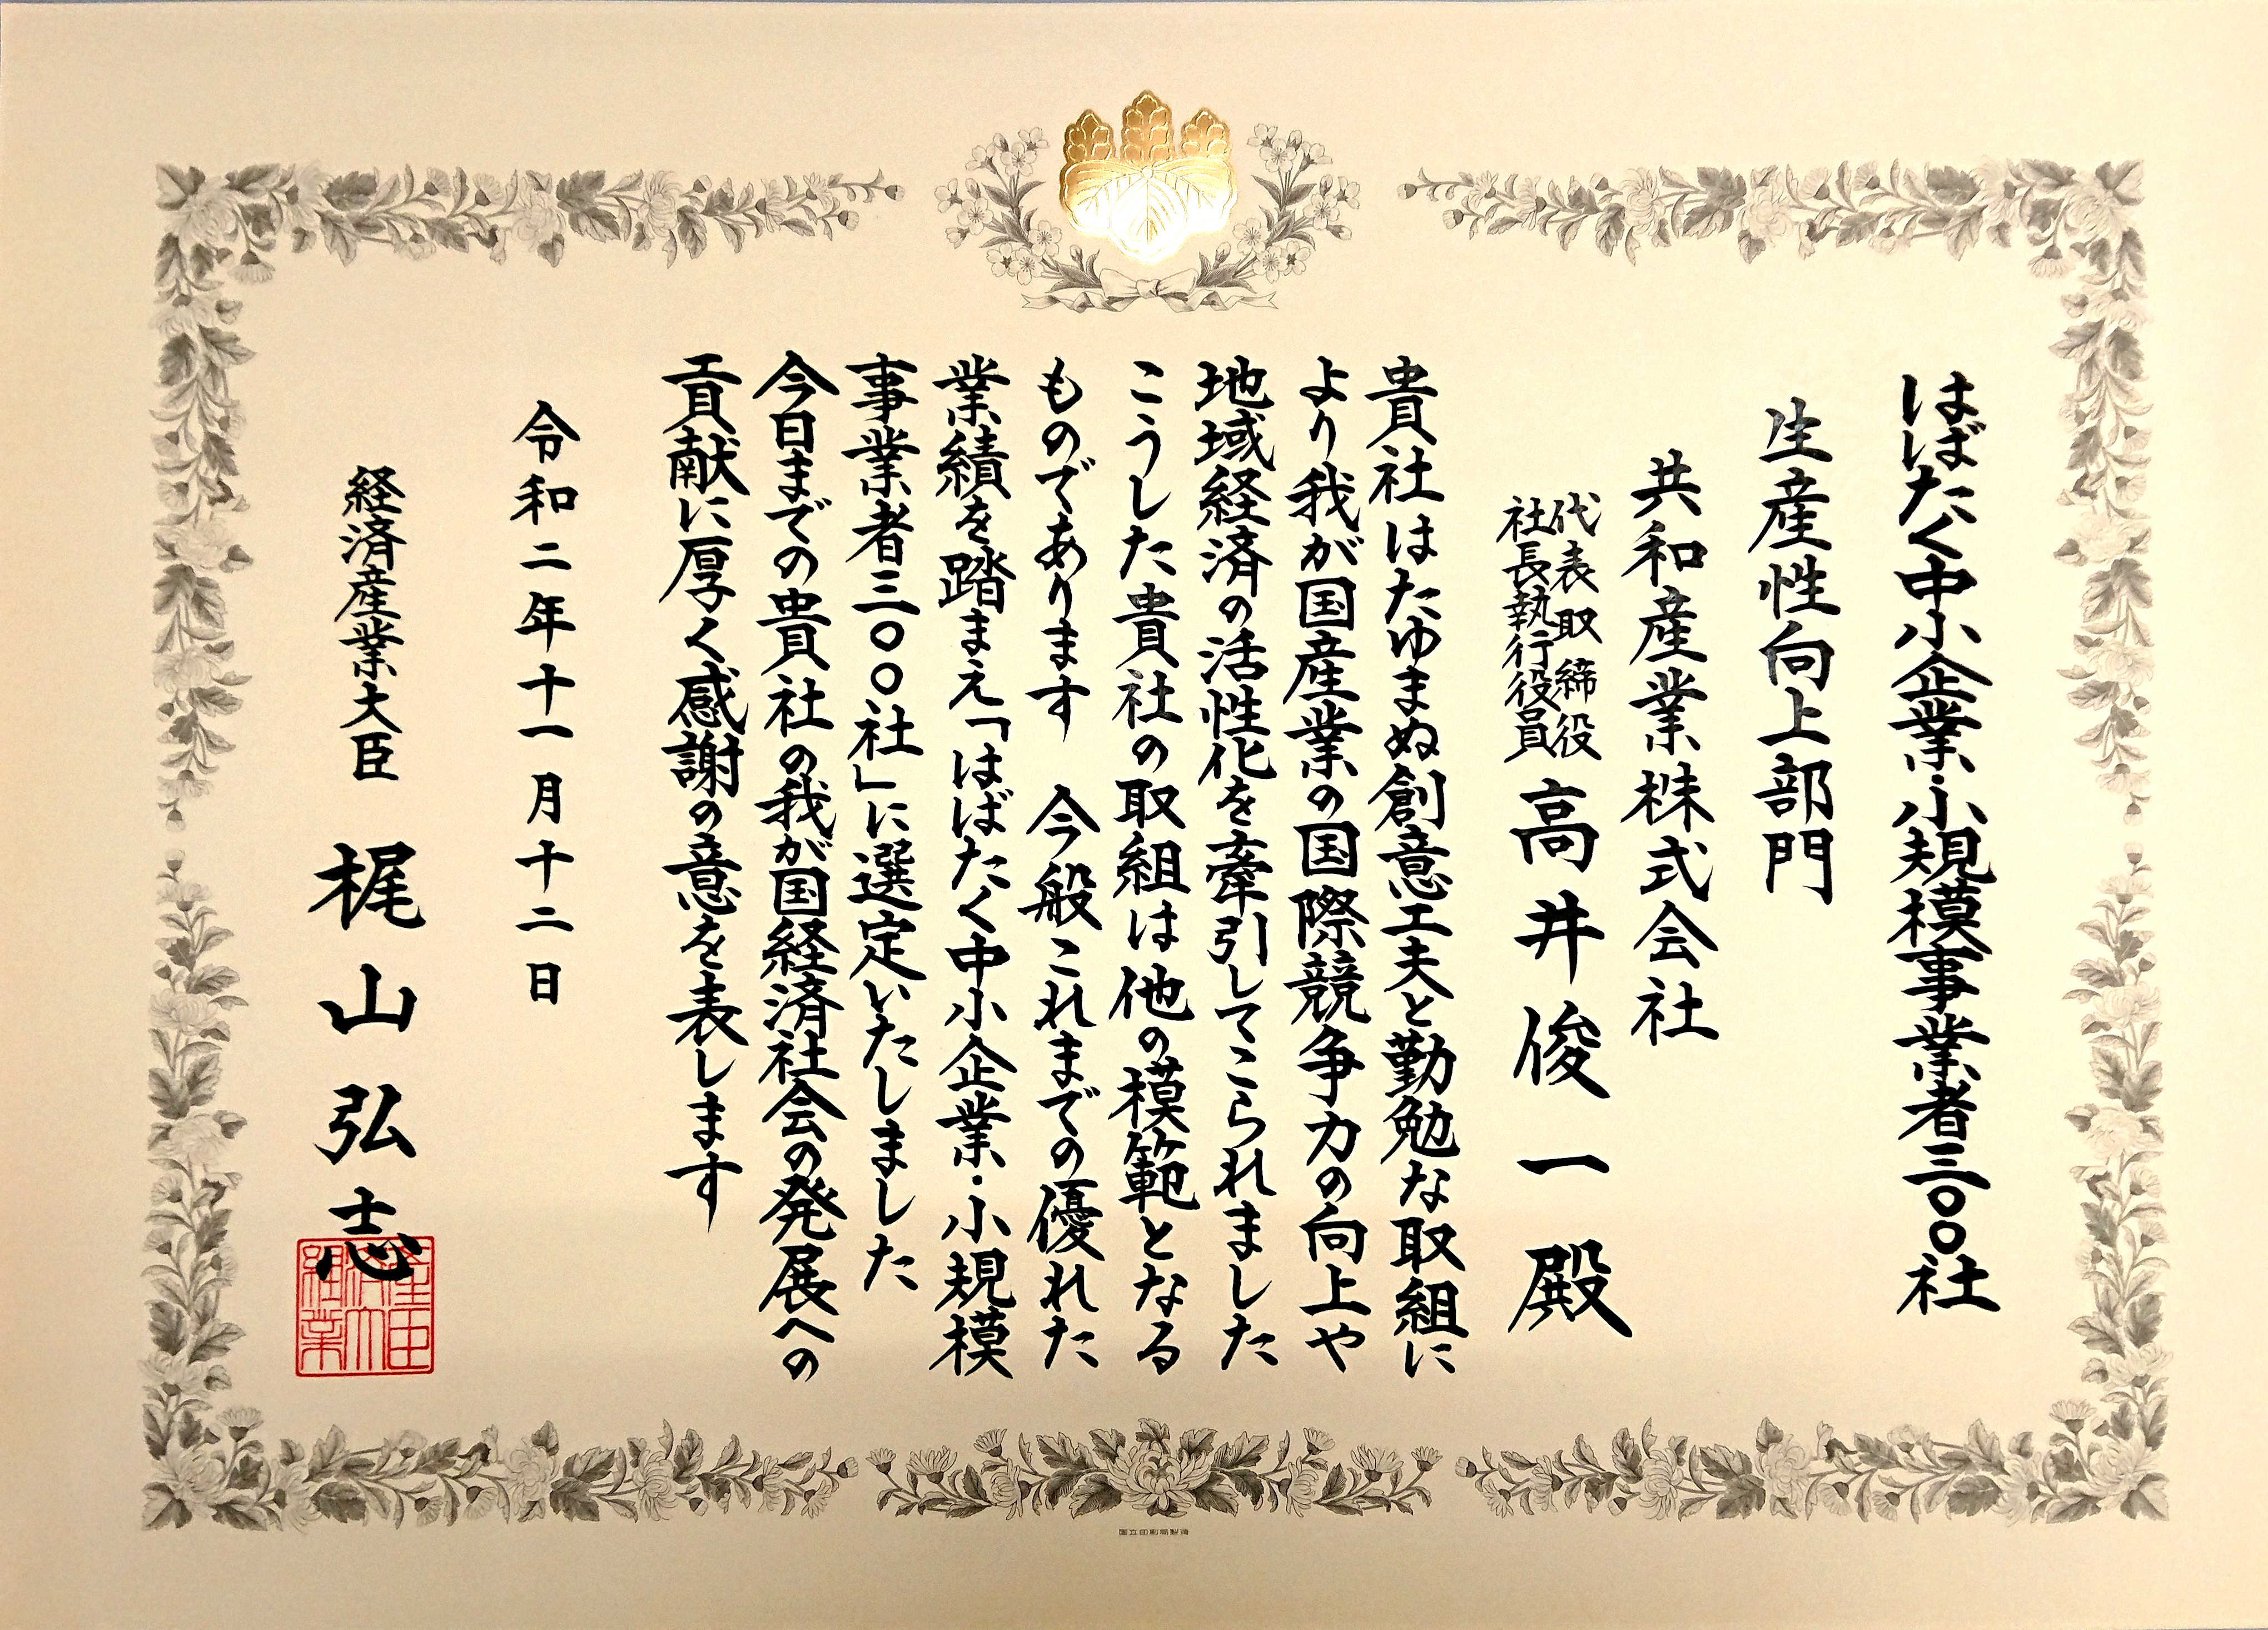 はばたく中小企業・小規模事業者三〇〇社
生産性向上部門
共和産業株式会社
代表取締役
社長執行役員
高井俊一殿
貴社はたゆまぬ創意工夫と勤勉な取組に
より我が国産業の国際競争力の向上や
地域経済の活性化を牽引してこられました
こうした貴社の取組は他の模範となる
ものであります 今般これまでの優れた
業績を踏まえ「はばたく中小企業・小規模
事業者三〇〇社」に選定いたしました
今日までの貴社の我が国経済社会の発展への
貢献に厚く感謝の意を表します
令和二年十一月十二日
経済産業大臣 梶山弘志
国立印刷局製造